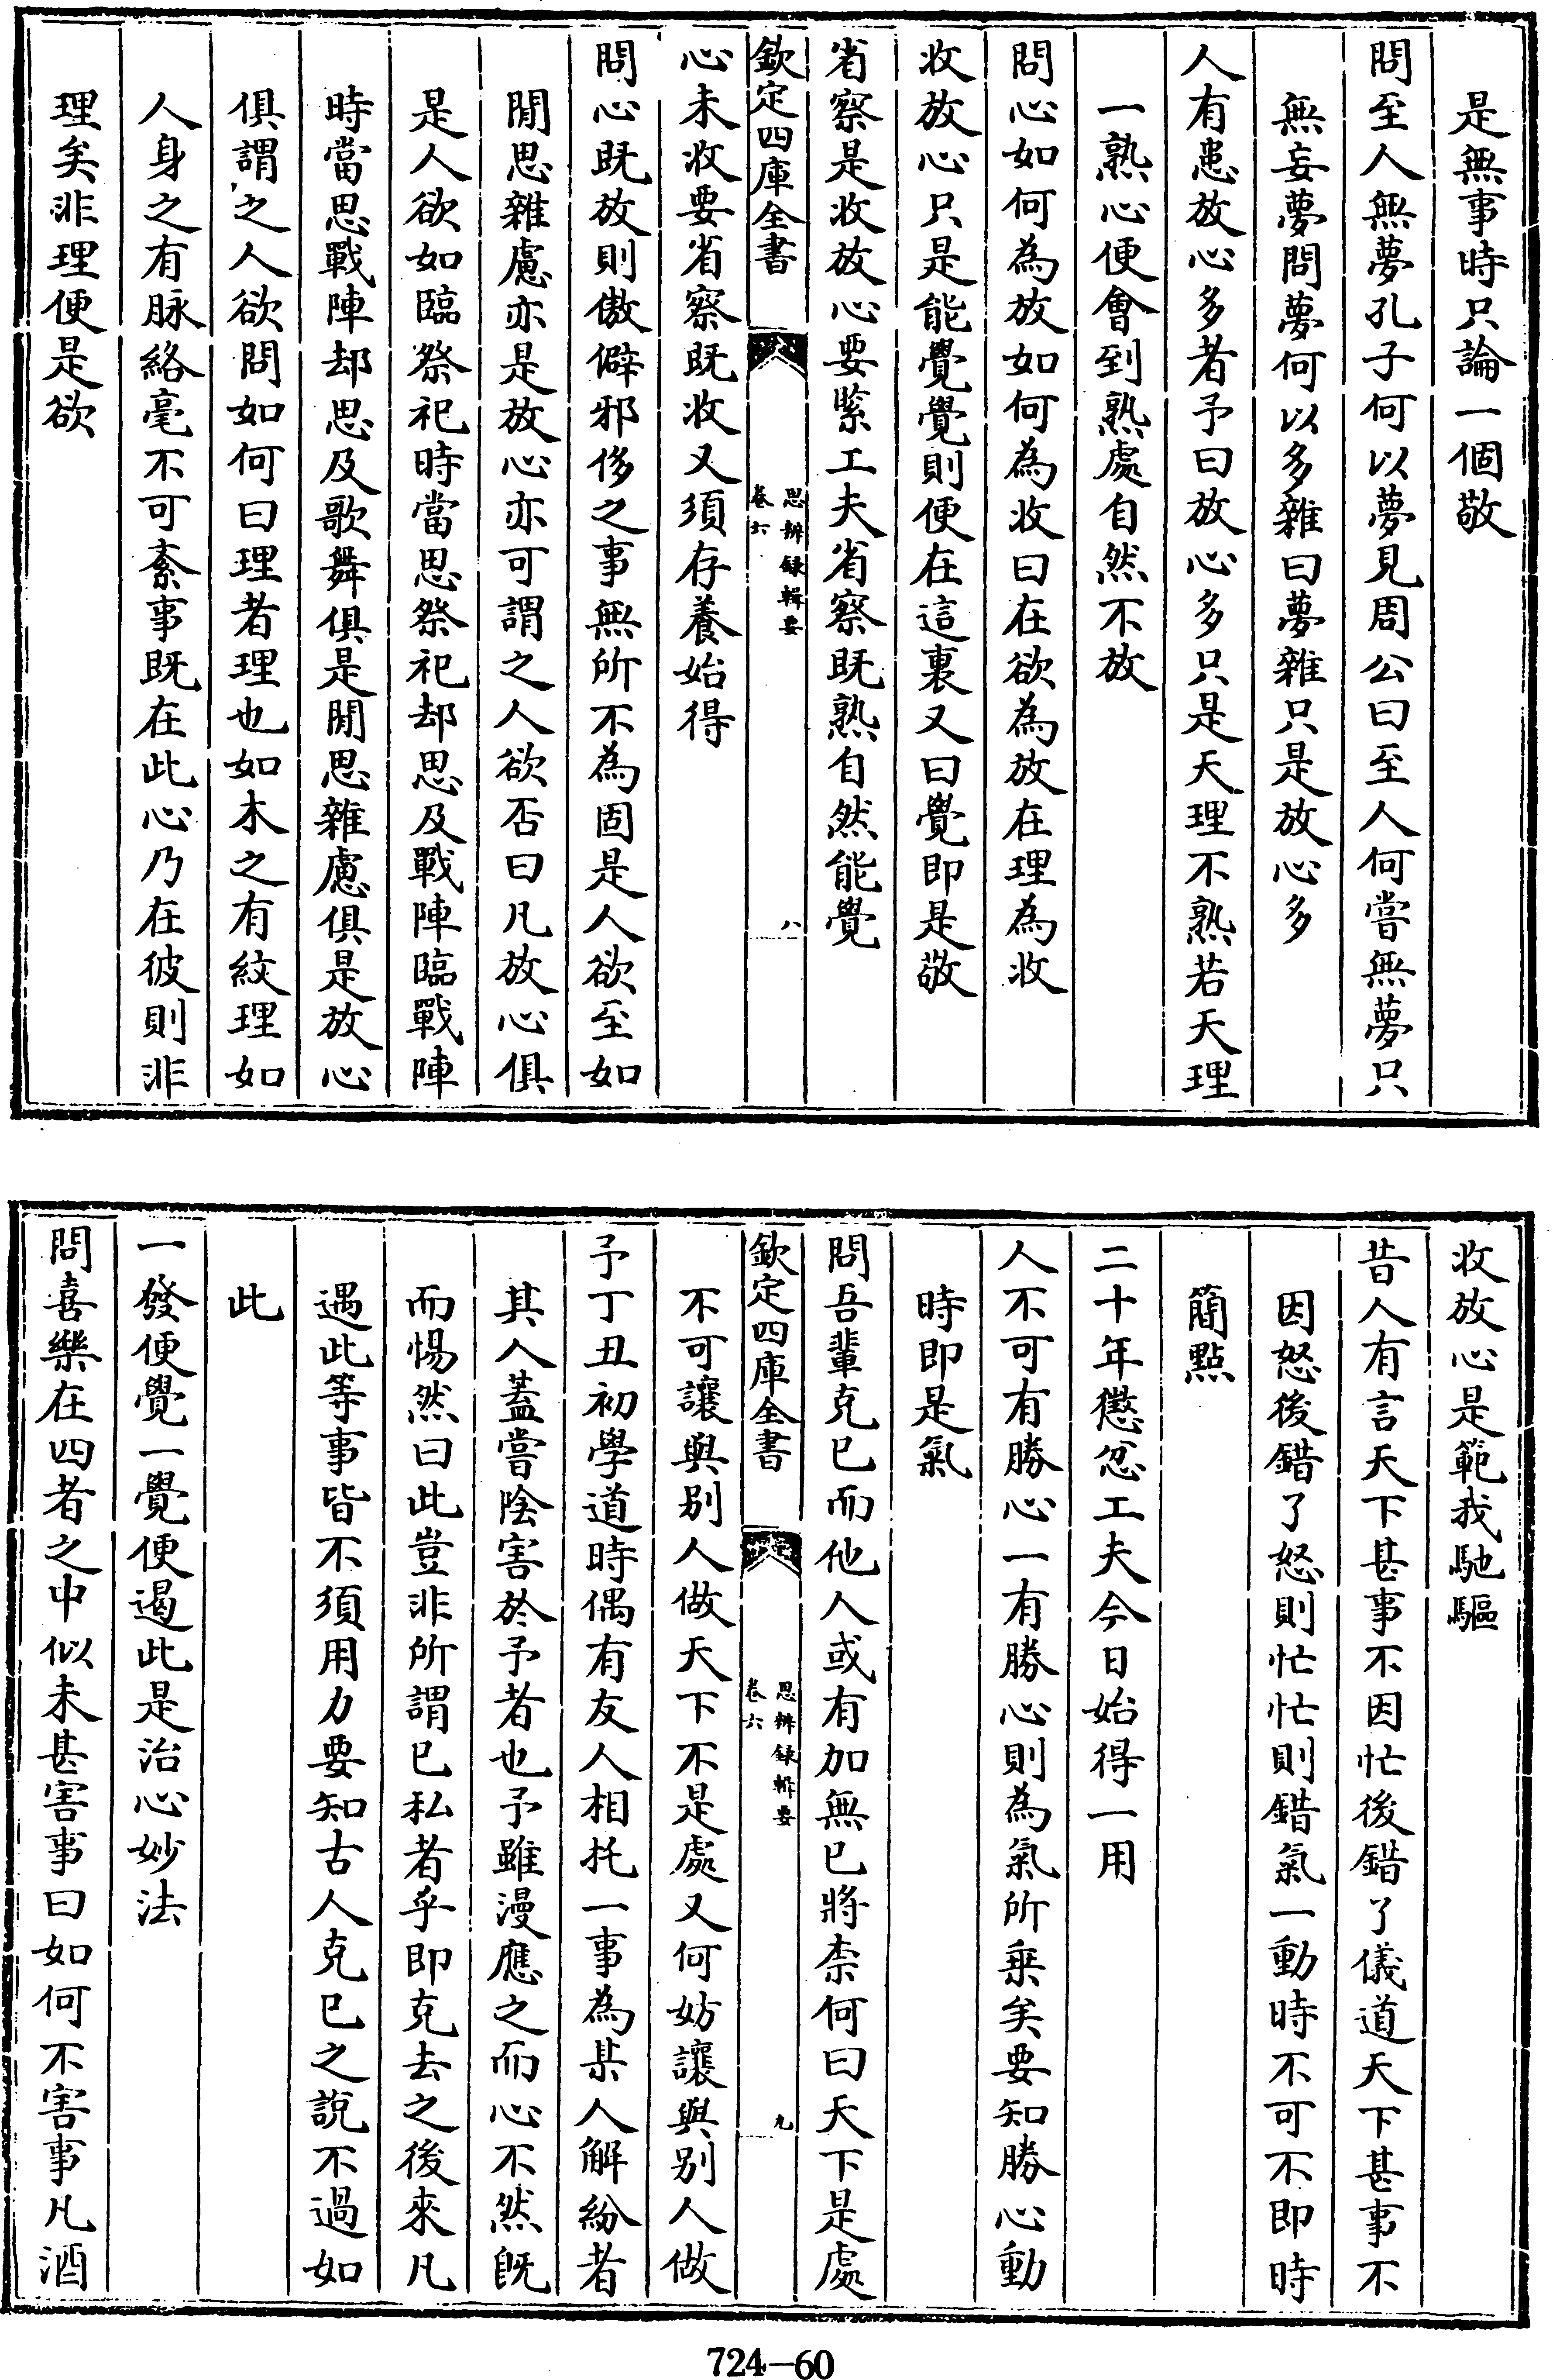 是無事時只論一個敬
問至人無夢孔子何以夢見周公曰至人何嘗無夢只
無妄夢問夢何以多雜曰夢雜只是放心多
人有患放心多者予曰放心多只是天理不熟若天理
一熟心便會到熟處自然不放
問心如何為放如何為收曰在欲為放在理為收
收放心只是能覺覺則便在這裏又曰覺即是敬
省察是收放心要緊工夫省察既熟自然能覺
欽定四庫全書
思辨録輯要
卷六
八
心未收要省察既收又須存養始得
問心既放則傲僻邪侈之事無所不為固是人欲至如
閒思雜慮亦是放心亦可謂之人欲否曰凡放心俱
是人欲如臨祭祀時當思祭祀却思及戰陣臨戰陣
時當思戰陣却思及歌舞俱是閒思雜慮俱是放心
俱謂之人欲問如何曰理者理也如木之有紋理如
人身之有脉絡毫不可紊事既在此心乃在彼則非
理矣非理便是欲
收放心是範我馳驅
昔人有言天下甚事不因忙後錯了儀道天下甚事不
因怒後錯了怒則忙忙則錯氣一動時不可不即時
簡點
二十年懲忿工夫今日始得一用
人不可有勝心一有勝心則為氣所乘矣要知勝心動
時即是氣
問吾輩克已而他人或有加無已將柰何曰天下是處
欽定四庫全書
思辨録輯要
卷六
九
不可讓與别人做天下不是處又何妨讓與别人做
予丁丑初學道時偶有友人相托一事為某人解紛者
其人蓋嘗陰害於予者也予雖漫應之而心不然既
而惕然曰此豈非所謂已私者乎即克去之後來凡
遇此等事皆不須用力要知古人克已之說不過如
此
一發便覺一覺便遏此是治心妙法
問喜樂在四者之中似未甚害事曰如何不害事凡酒
724-60